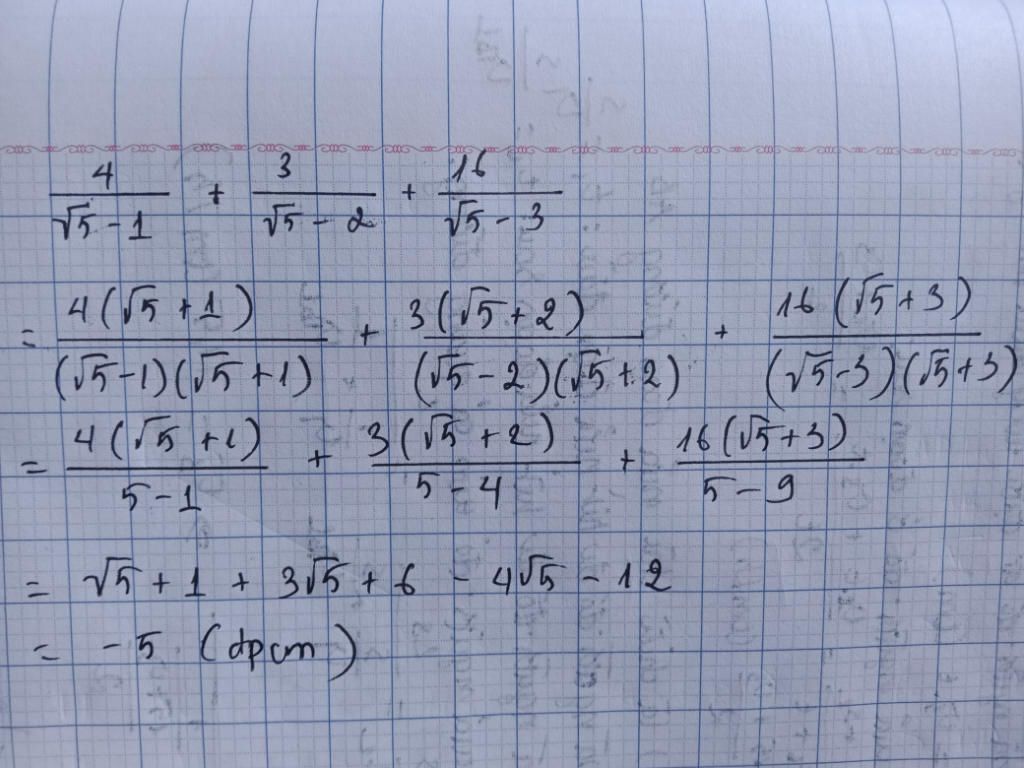 4/(√5 - 1) + 3/(√5 - 2) + 16/(√5 - 3)
= 4(√5 + 1)/((√5 - 1)(√5 + 1)) + 3(√5 + 2)/((√5 - 2)(√5 + 2)) + 16(√5 + 3)/((√5 - 3)(√5 + 3))
= 4(√5 + 1)/(5 - 1) + 3(√5 + 2)/(5 - 4) + 16(√5 + 3)/(5 - 9)
= √5 + 1 + 3√5 + 6 - 4√5 - 12
= -5 (đpcm)